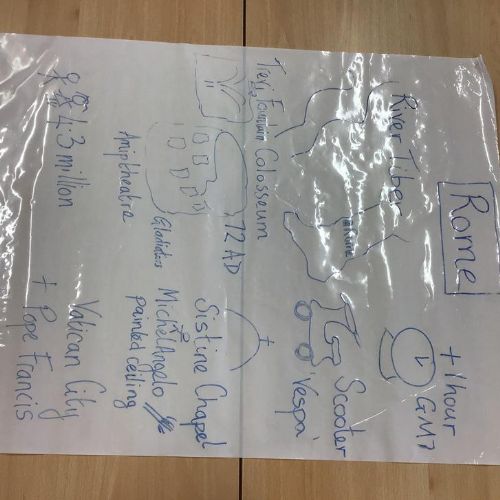 Rome
River Tiber
+1 hour
GMT
Scooter
Vespa
Trevi Fountain
Colosseum
72 AD
Sistine Chapel
Michelangelo
painted ceiling
Ampitheatre
Gladiators
4.3 million
Vatican City
+ Pope Francis